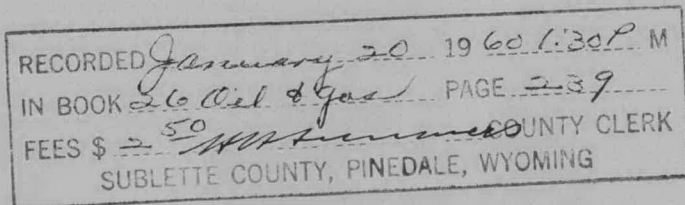 RECORDED January 20 1960 1:30P M
IN BOOK 26 Oil & Gas PAGE 239
FEES $ 2 50 COUNTY CLERK
SUBLETTE COUNTY, PINEDALE, WYOMING